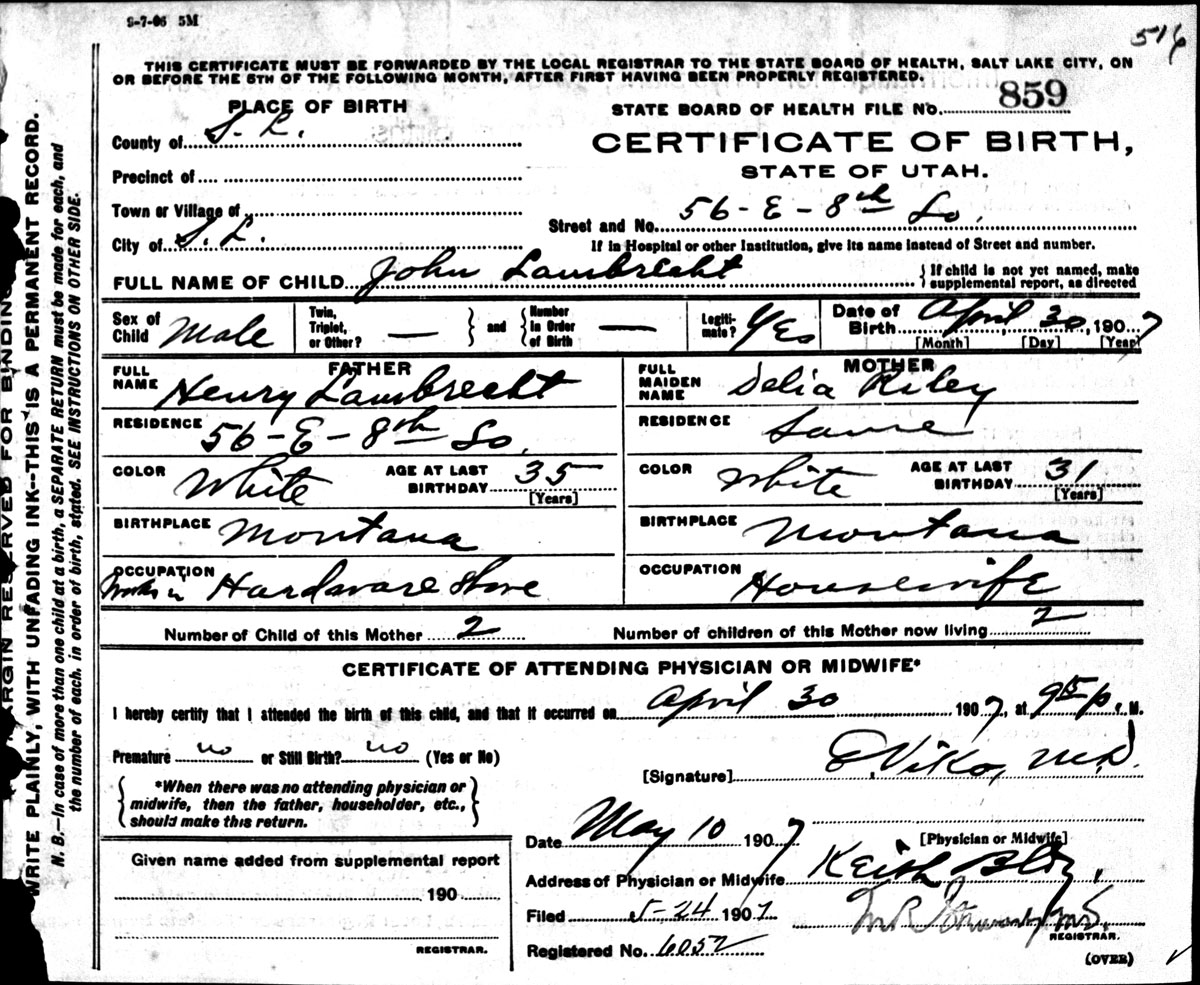 9-7-06 5M
516
THIS CERTIFICATE MUST BE FORWARDED BY THE LOCAL REGISTRAR TO THE STATE BOARD OF HEALTH, SALT LAKE CITY, ON
OR BEFORE THE 5TH OF THE FOLLOWING MONTH, AFTER FIRST HAVING BEEN PROPERLY REGISTERED.
PLACE OF BIRTH
STATE BOARD OF HEALTH FILE No. 859
County of S. L.
CERTIFICATE OF BIRTH,
STATE OF UTAH.
Precinct of
Town or Village of
Street and No. 56-E-8th So.
City of S. L.
If in Hospital or other Institution, give its name instead of Street and number.
FULL NAME OF CHILD John Lambrecht
{If child is not yet named, make
supplemental report, as directed
Sex of Child Male
Twin, Triplet, or Other? —
and
Number in Order of Birth —
Legiti-mate? Yes
Date of Birth April 30, 1907
[Month] [Day] [Year]
FATHER
FULL NAME Henry Lambrecht
MOTHER
FULL MAIDEN NAME Delia Riley
RESIDENCE 56-E-8th So.
RESIDENCE Same
COLOR White AGE AT LAST BIRTHDAY 35 [Years]
COLOR White AGE AT LAST BIRTHDAY 31 [Years]
BIRTHPLACE Montana
BIRTHPLACE Montana
OCCUPATION Works in Hardware Store
OCCUPATION Housewife
Number of Child of this Mother 2
Number of children of this Mother now living 2
CERTIFICATE OF ATTENDING PHYSICIAN OR MIDWIFE*
I hereby certify that I attended the birth of this child, and that it occurred on April 30 1907, at 9 15 p P.M.
Premature no or Still Birth? no (Yes or No)
[Signature] E. Viko, M.D.
{*When there was no attending physician or
midwife, then the father, householder, etc.,
should make this return.}
Date May 10 1907
[Physician or Midwife]
Given name added from supplemental report
Address of Physician or Midwife Keith Bldg.
190
Filed 5-24 1907
M.D.
REGISTRAR.
REGISTRAR.
Registered No. 6052
(OVER)
MARGIN RESERVED FOR BINDING
WRITE PLAINLY, WITH UNFADING INK--THIS IS A PERMANENT RECORD.
N. B.—In case of more than one child at a birth, a SEPARATE RETURN must be made for each, and
the number of each, in order of birth, stated. SEE INSTRUCTIONS ON OTHER SIDE.